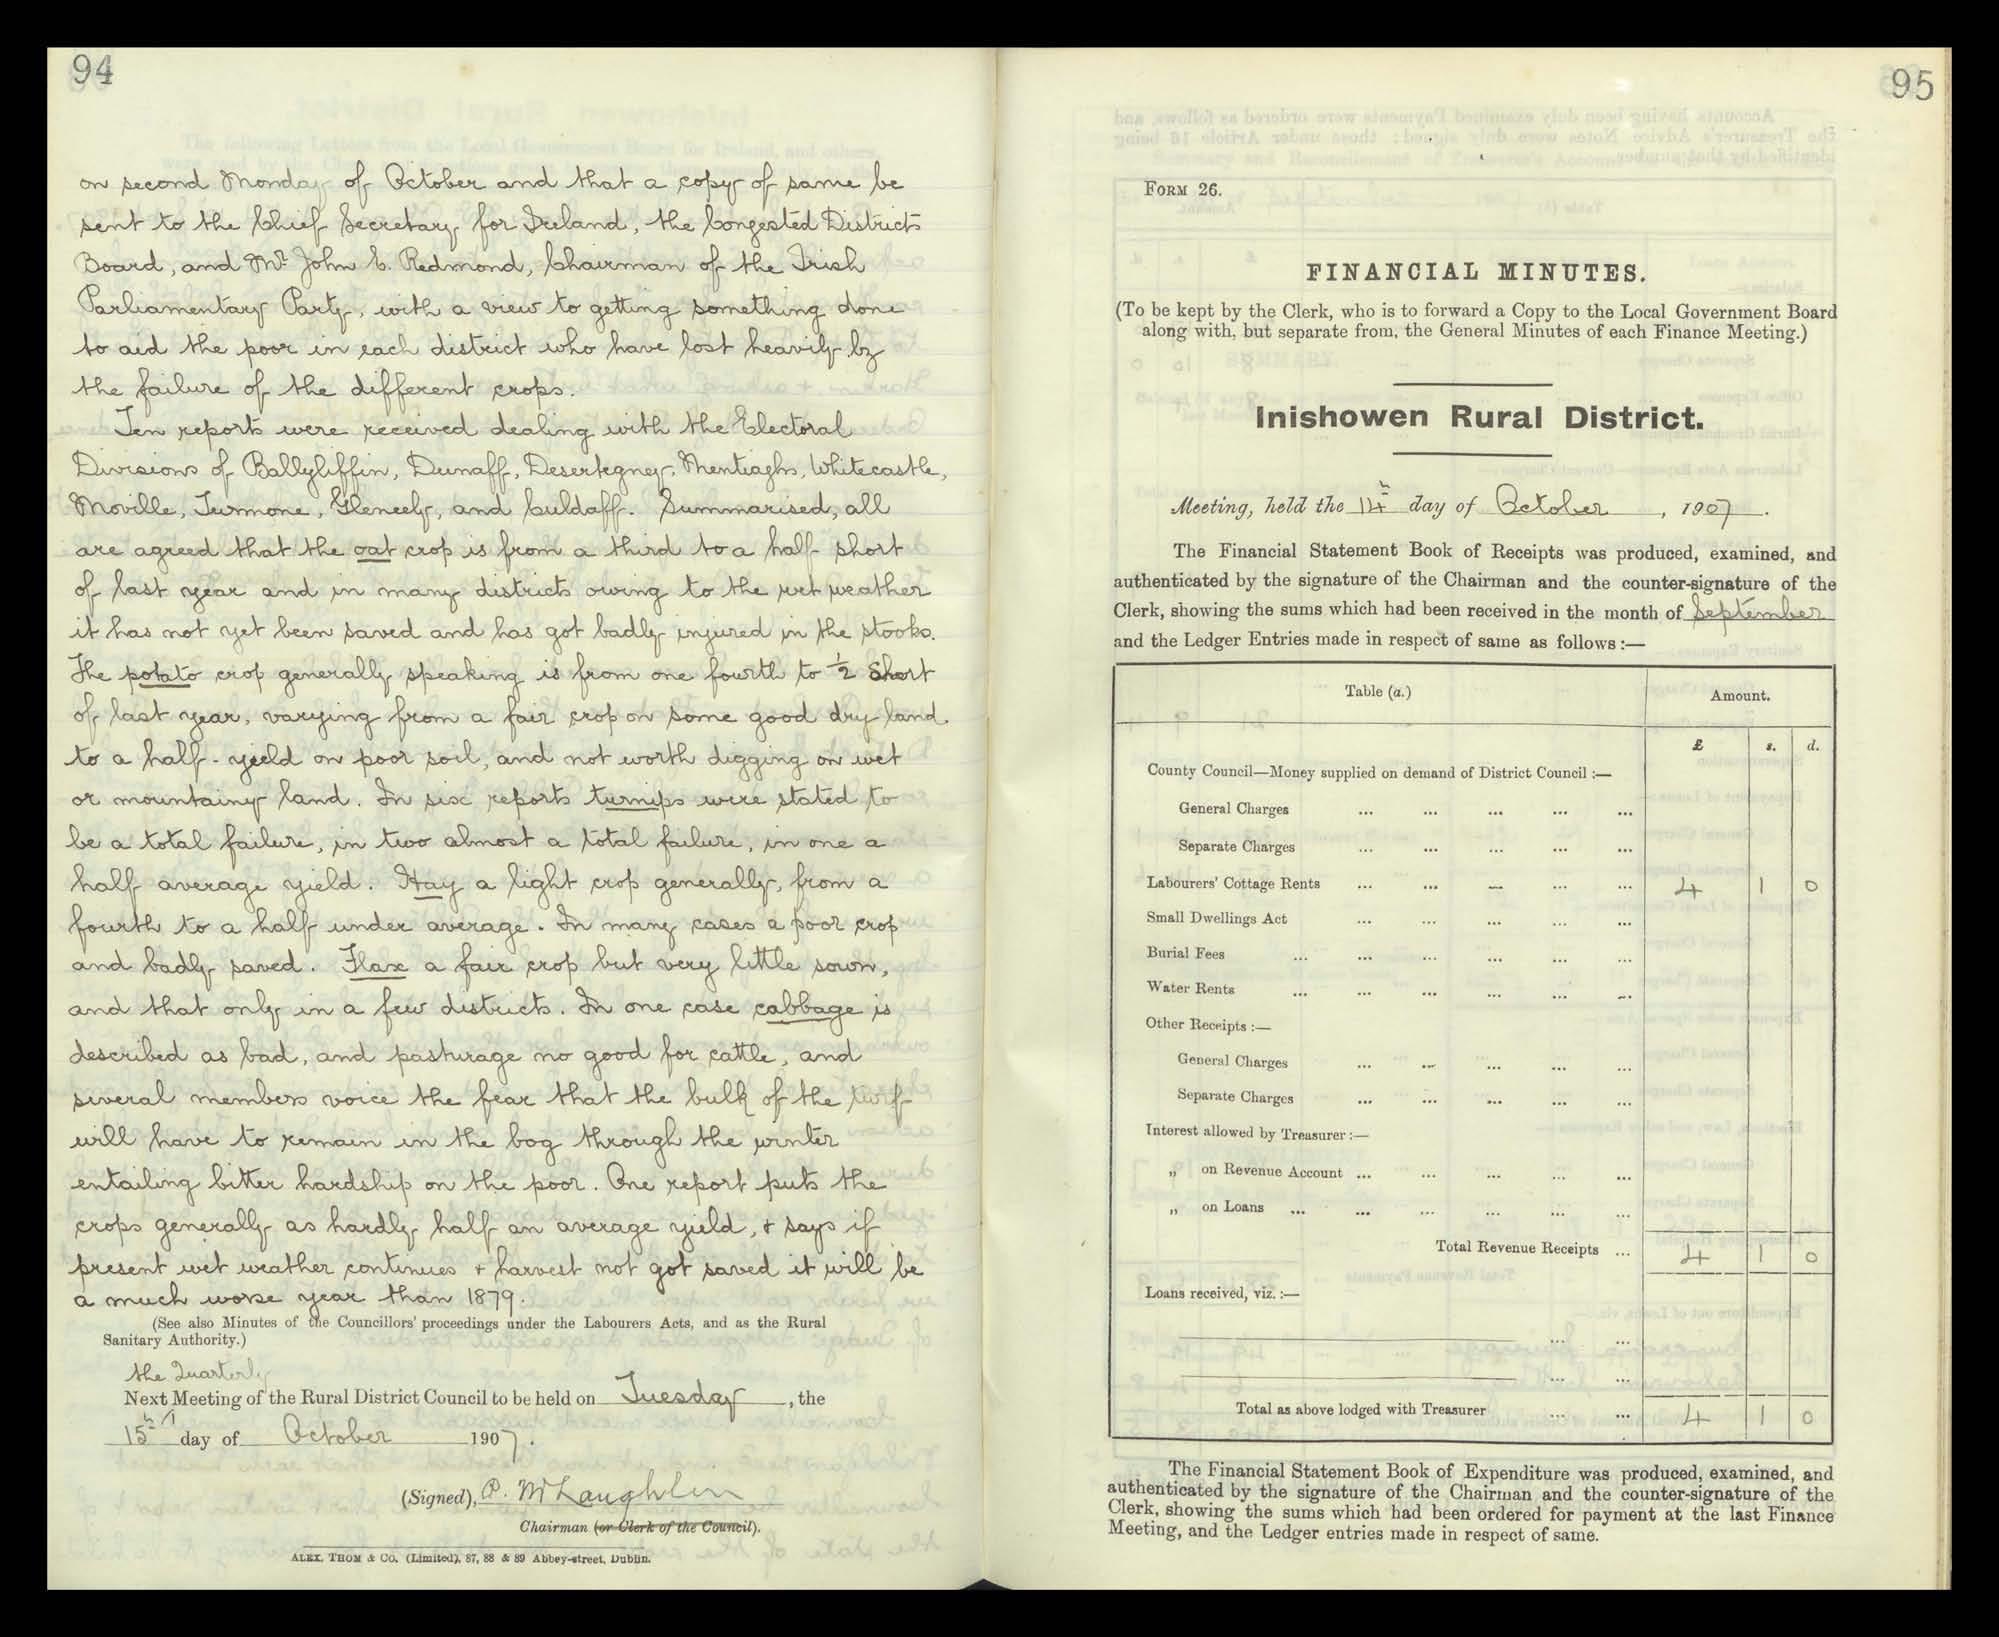 94
on second Monday of October and that a copy of same be
sent to the Chief Secretary for Ireland, the Congested Districts
Board, and Mr. John E. Redmond, Chairman of the Irish
Parliamentary Party, with a view to getting something done
to aid the poor in each district who have lost heavily by
the failure of the different crops.
Ten reports were received dealing with the Electoral
Divisions of Ballyliffin, Dunaff, Desertegney, Mentiaghs, Whitecastle,
Moville, Turmone, Gleneely, and Culdaff. Summarised, all
are agreed that the oat crop is from a third to a half short
of last year and in many districts owing to the wet weather
it has not yet been saved and has got badly injured in the stooks.
The potato crop generally speaking is from one fourth to ½ short
of last year, varying from a fair crop on some good dry land
to a half-yield on poor soil, and not worth digging on wet
or mountainy land. In six reports turnips were stated to
be a total failure, in two almost a total failure, in one a
half average yield. Hay a light crop generally, from a
fourth to a half under average. In many cases a poor crop
and badly saved. Flax a fair crop but very little sown,
and that only in a few districts. In one case cabbage is
described as bad, and pasturage no good for cattle, and
several members voice the fear that the bulk of the turf
will have to remain in the bog through the winter
entailing bitter hardship on the poor. One report puts the
crops generally as hardly half an average yield, & says if
present wet weather continues & harvest not got saved it will be
a much worse year than 1879.
(See also Minutes of the Councillors' proceedings under the Labourers Acts, and as the Rural
Sanitary Authority.)
the Quarterly
Next Meeting of the Rural District Council to be held on Tuesday, the
15th day of October 1907.
(Signed), P. McLaughlin
Chairman (or Clerk of the Council).
ALEX. THOM & Co. (Limited), 87, 88 & 89 Abbey-street, Dublin.
95
FORM 26.
FINANCIAL MINUTES.
(To be kept by the Clerk, who is to forward a Copy to the Local Government Board
along with, but separate from, the General Minutes of each Finance Meeting.)
Inishowen Rural District.
Meeting, held the 14th day of October, 1907.
The Financial Statement Book of Receipts was produced, examined, and
authenticated by the signature of the Chairman and the counter-signature of the
Clerk, showing the sums which had been received in the month of September
and the Ledger Entries made in respect of same as follows:—
Table (a.) Amount.
£ s. d.
County Council—Money supplied on demand of District Council:—
General Charges ... ... ... ... ...
Separate Charges ... ... ... ... ...
Labourers' Cottage Rents ... ... ... ... ... 4 1 0
Small Dwellings Act ... ... ... ... ...
Burial Fees ... ... ... ... ... ...
Water Rents ... ... ... ... ... ...
Other Receipts:—
General Charges ... ... ... ... ...
Separate Charges ... ... ... ... ...
Interest allowed by Treasurer:—
„ on Revenue Account ... ... ... ... ...
„ on Loans ... ... ... ... ... ...
Total Revenue Receipts ... 4 1 0
Loans received, viz.:—
... ...
... ...
Total as above lodged with Treasurer ... ... 4 1 0
The Financial Statement Book of Expenditure was produced, examined, and
authenticated by the signature of the Chairman and the counter-signature of the
Clerk, showing the sums which had been ordered for payment at the last Finance
Meeting, and the Ledger entries made in respect of same.